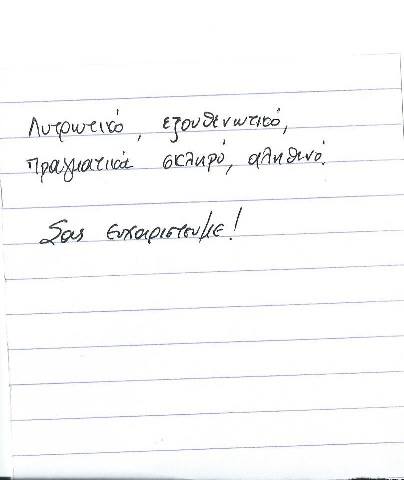 Λυτρωτικό, εξουθενωτικό,
πραγματικά σκληρό, αληθινό.
Σας ευχαριστουμε!